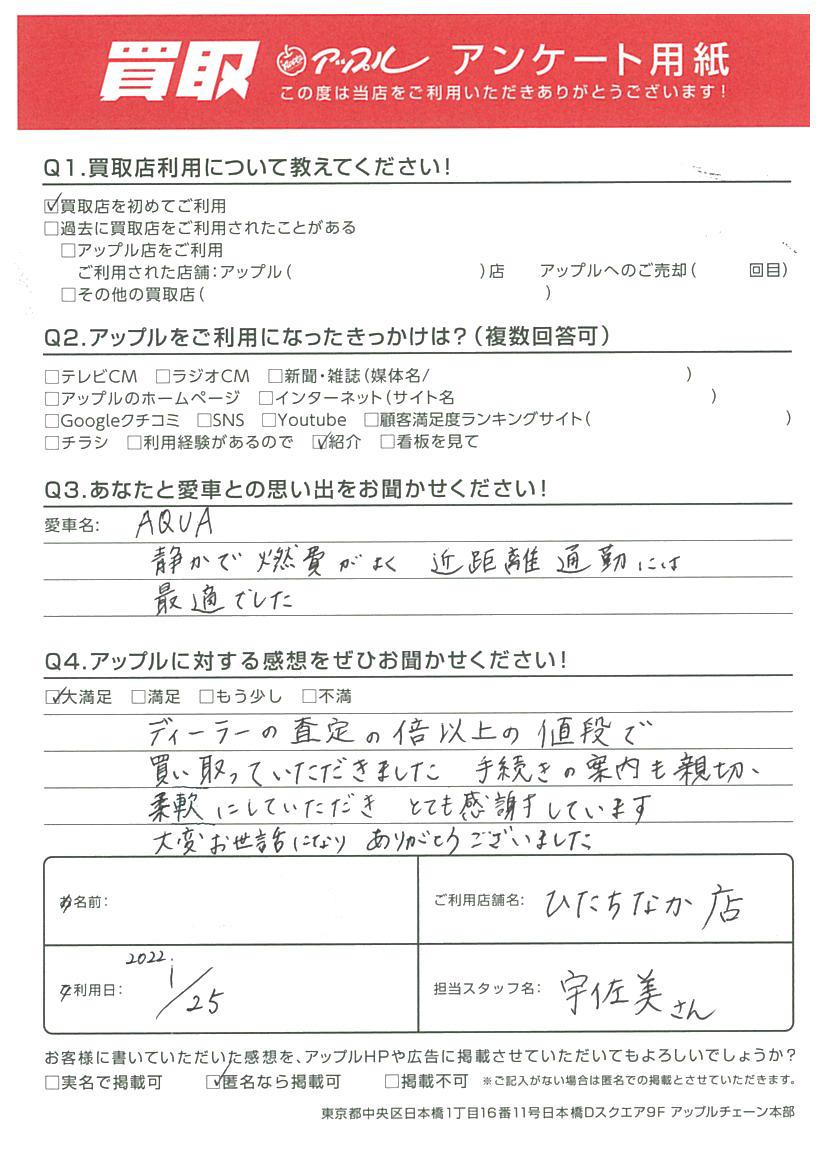 買取 アップル アンケート用紙
この度は当店をご利用いただきありがとうございます!
Q1.買取店利用について教えてください!
☑買取店を初めてご利用
□過去に買取店をご利用されたことがある
□アップル店をご利用
ご利用された店舗:アップル( )店 アップルへのご売却( 回目)
□その他の買取店( )
Q2.アップルをご利用になったきっかけは?(複数回答可)
□テレビCM □ラジオCM □新聞・雑誌(媒体名/ )
□アップルのホームページ □インターネット(サイト名 )
□Googleクチコミ □SNS □Youtube □顧客満足度ランキングサイト( )
□チラシ □利用経験があるので ☑紹介 □看板を見て
Q3.あなたと愛車との思い出をお聞かせください!
愛車名: AQUA
静かで燃費がよく 近距離通勤には
最適でした
Q4.アップルに対する感想をぜひお聞かせください!
☑大満足 □満足 □もう少し □不満
ディーラーの査定の倍以上の値段で
買い取っていただきました 手続きの案内も親切、
柔軟にしていただき とても感謝しています
大変お世話になり ありがとうございました
お名前:
ご利用店舗名: ひたちなか店
ご利用日: 2022. 1/25
担当スタッフ名: 宇佐美さん
お客様に書いていただいた感想を、アップルHPや広告に掲載させていただいてもよろしいでしょうか?
□実名で掲載可 ☑匿名なら掲載可 □掲載不可 ※ご記入がない場合は匿名での掲載とさせていただきます。
東京都中央区日本橋1丁目16番11号日本橋Dスクエア9F アップルチェーン本部